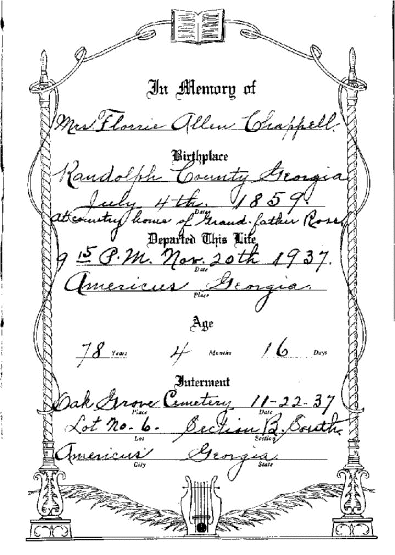 In Memory of
Mrs. Florrie Allen Chappell.
Birthplace
Randolph County Georgia
July 4th. 1859.
Date
At country home of Grand father Ross
Departed This Life
9 15 P.M. Nov. 20th 1937.
Date
Americus Georgia.
Place
Age
78 Years 4 Months 16 Days
Interment
Oak Grove Cemetery 11-22-37
Place Date
Lot No. 6. Section B. South
Lot Section
Americus Georgia.
City State